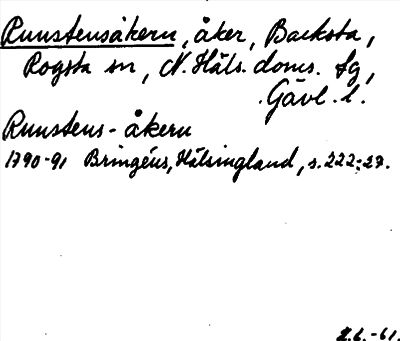 Runstensåkern, åker, Backsta,
Rogsta sn, N. Häls. doms. fg,
Gävl. l.
Runstens-åkern
1790-91 Bringéus, Hälsingland, s. 222:27.
-61.